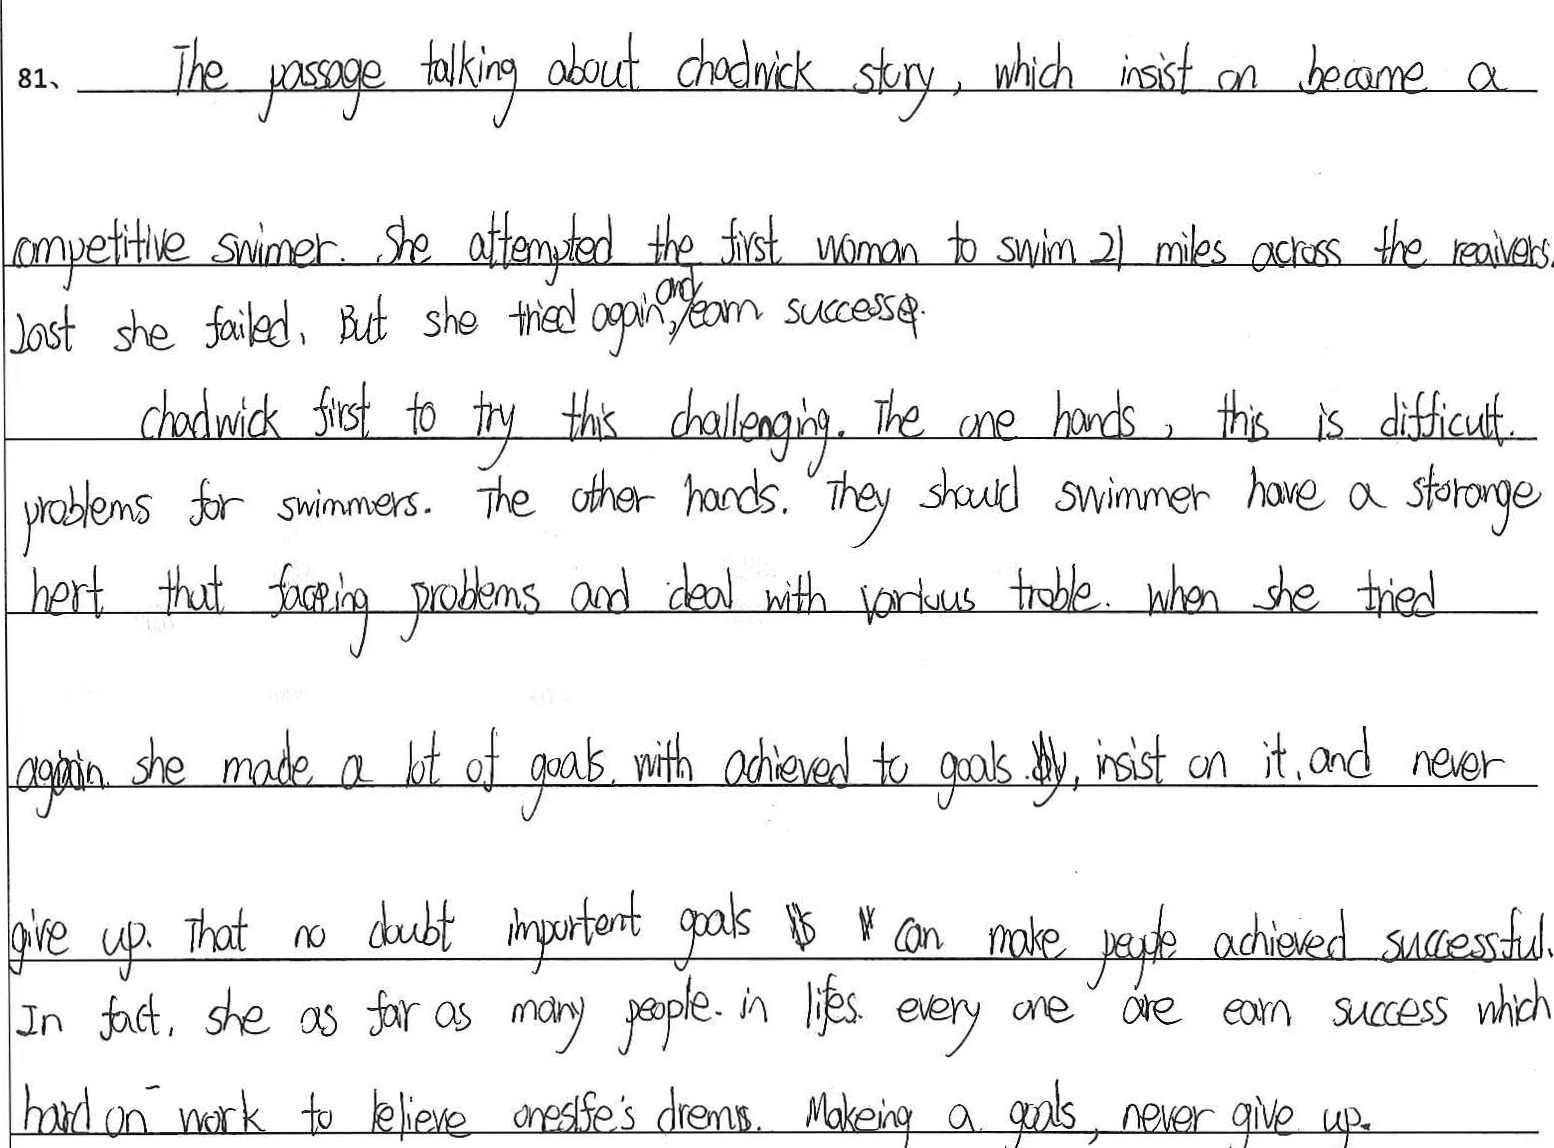 81、 The passage talking about chadwick story, which insist on became a
ompetitive swimer. She attempted the first woman to swim 21 miles across the reaivers.
Last she failed. But she tried again, and earn success.
chadwick first to try this challenging. The one hands, this is difficult.
problems for swimmers. The other hands. They should swimmer have a storange
hert that facing problems and deal with various troble. When she tried
again. she made a lot of goals. with achieved to goals. by, insist on it. and never
give up. That no doubt importent goals can make people achieved successful.
In fact. she as far as many people. in lifes. every one are earn success which
hard on work to believe oneslfe's drems. Makeing a goals, never give up.